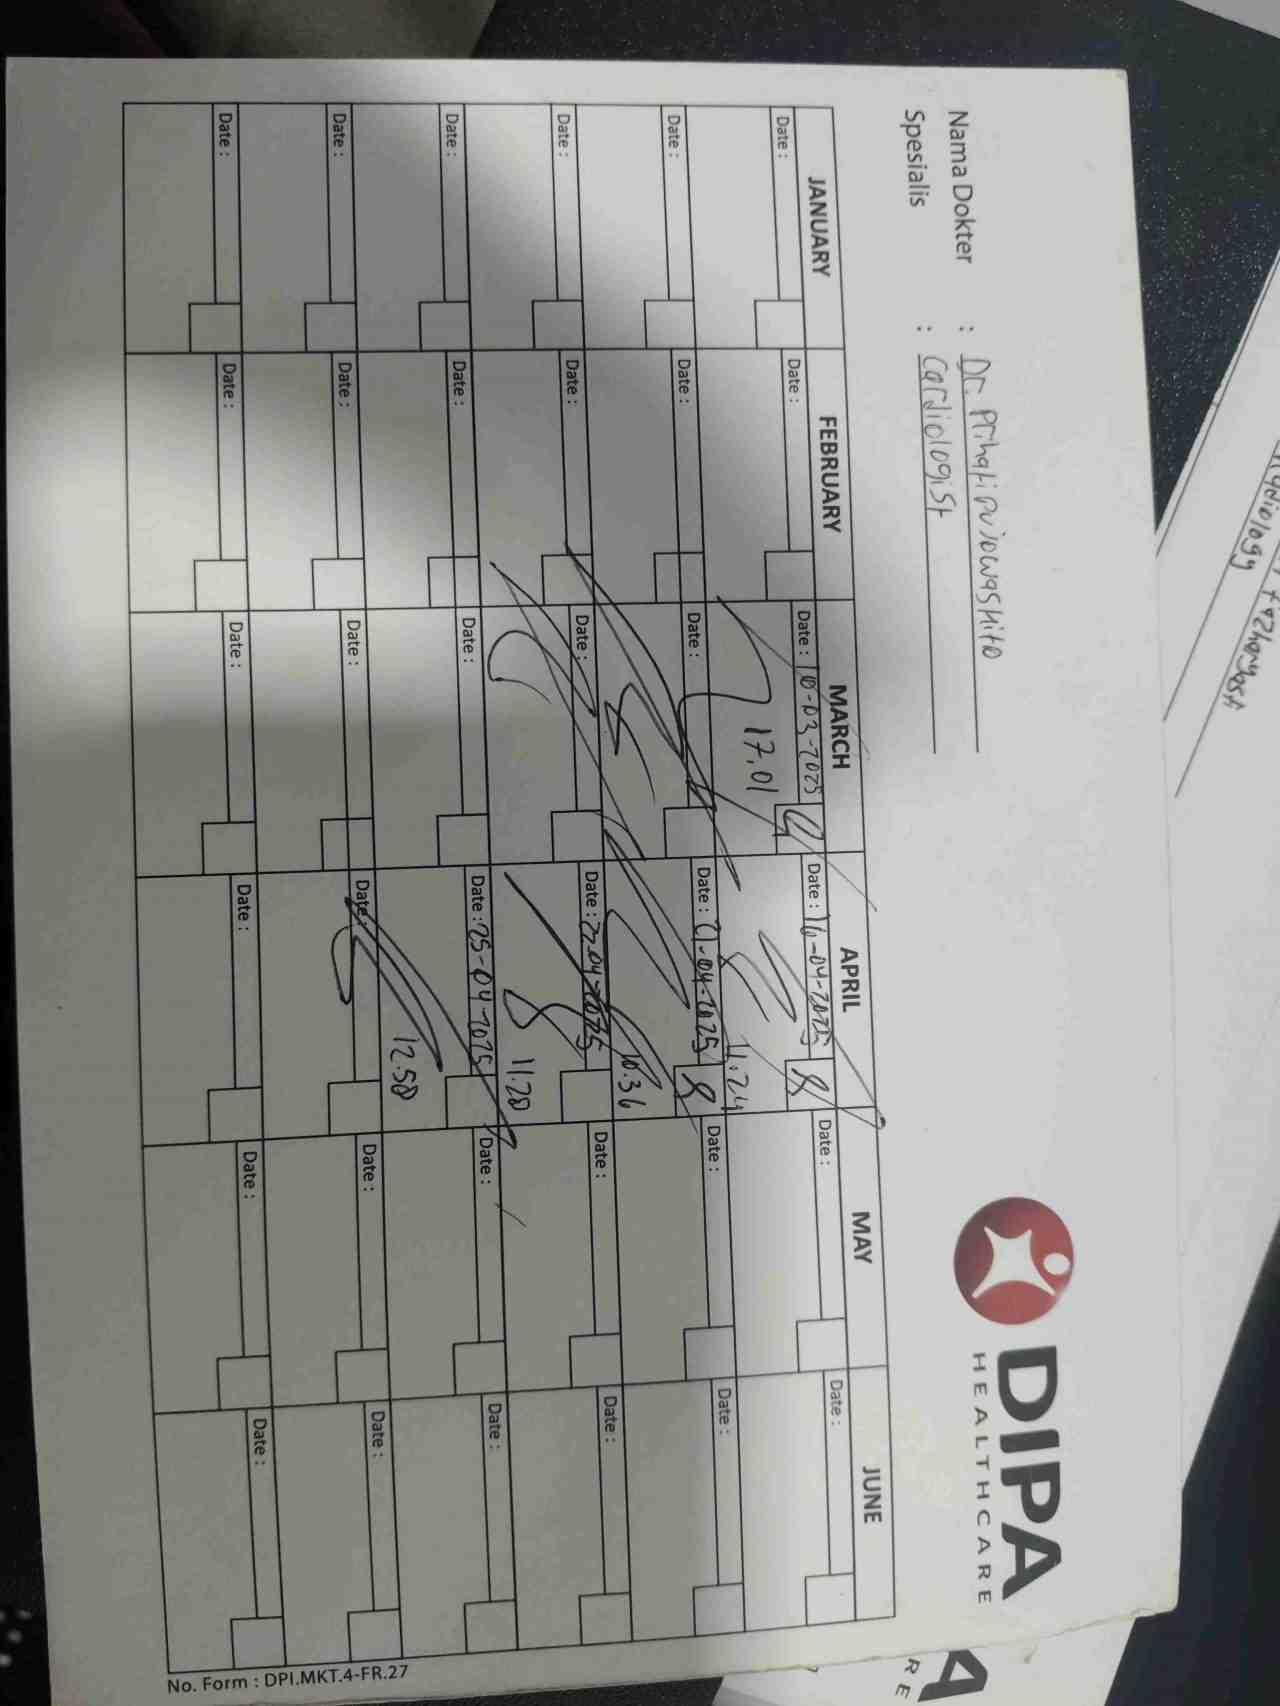 DIPA
HEALTHCARE
Nama Dokter :
Spesialis : Cardiologist
JANUARY FEBRUARY MARCH APRIL MAY JUNE
Date : Date : Date : 10-03-2025 Date : 16-04-2025 Date : Date :
17.01 11.24
Date : Date : Date : Date : 21-04-2025 Date : Date :
10.36
Date : Date : Date : Date : 22-04-2025 Date : Date :
11.20
Date : Date : Date : Date : 25-04-2025 Date : Date :
12.50
Date : Date : Date : Date : Date : Date :
Date : Date : Date : Date : Date : Date :
No. Form : DPI.MKT.4-FR.27